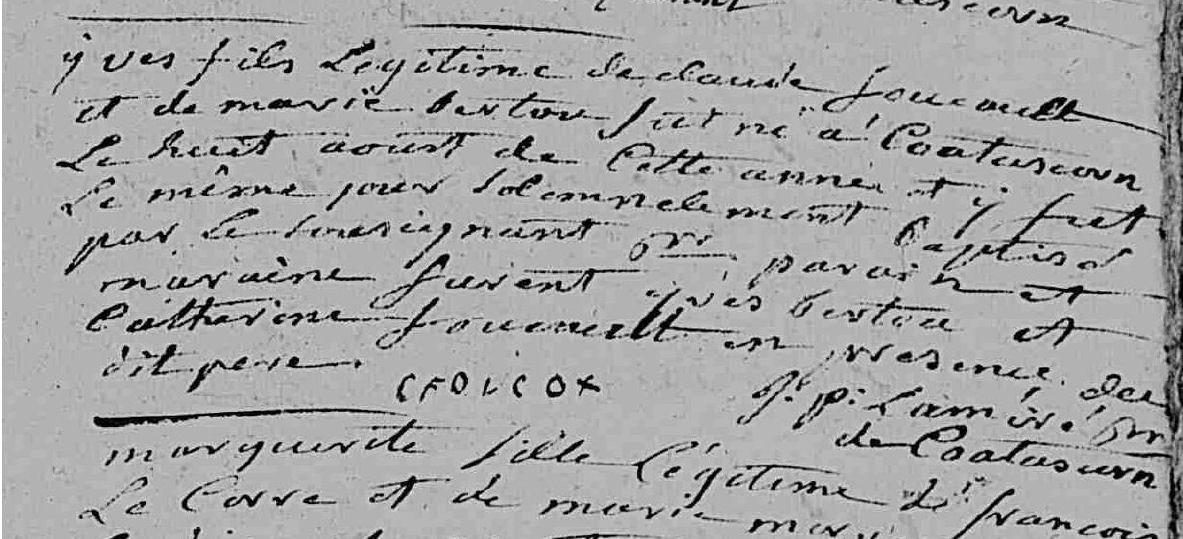 yves fils Legitime de claude foucault
et de marie bertou fut né a Coatascorn
Le huit aoust de Cette année et y fut
Le même jour solemnelement baptisé
par Le soussignant prr parain et
maraine furent yves bertou et
Catherine foucault en presence de
dit pere.
j. p. Lamiré prr
de Coatascorn
marguerite fille Légitime de françois
Le Corre et de marie